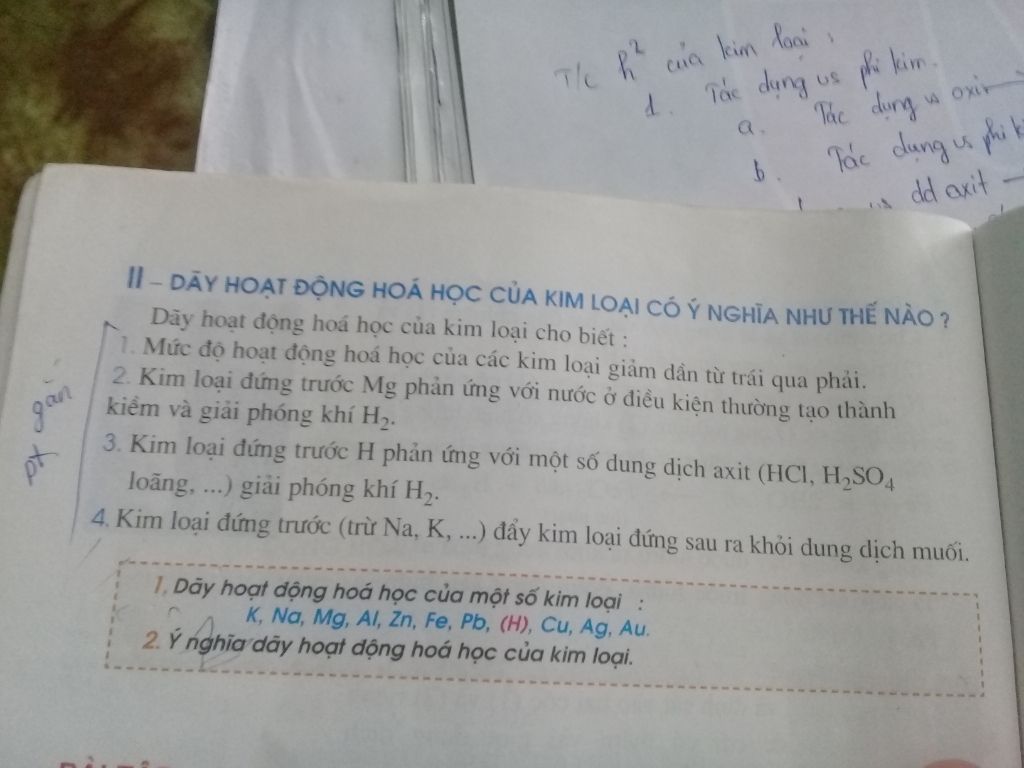 T/c h² của kim loại :
1. Tác dụng vs phi kim.
a. Tác dụng vs oxi
b. Tác dụng vs phi k
dd axit
II – DÃY HOẠT ĐỘNG HOÁ HỌC CỦA KIM LOẠI CÓ Ý NGHĨA NHƯ THẾ NÀO ?
Dãy hoạt động hoá học của kim loại cho biết :
1. Mức độ hoạt động hoá học của các kim loại giảm dần từ trái qua phải.
2. Kim loại đứng trước Mg phản ứng với nước ở điều kiện thường tạo thành
kiềm và giải phóng khí H₂.
3. Kim loại đứng trước H phản ứng với một số dung dịch axit (HCl, H₂SO₄
loãng, ...) giải phóng khí H₂.
4. Kim loại đứng trước (trừ Na, K, ...) đẩy kim loại đứng sau ra khỏi dung dịch muối.
pt gắn
1. Dãy hoạt động hoá học của một số kim loại :
K, Na, Mg, Al, Zn, Fe, Pb, (H), Cu, Ag, Au.
2. Ý nghĩa dãy hoạt động hoá học của kim loại.